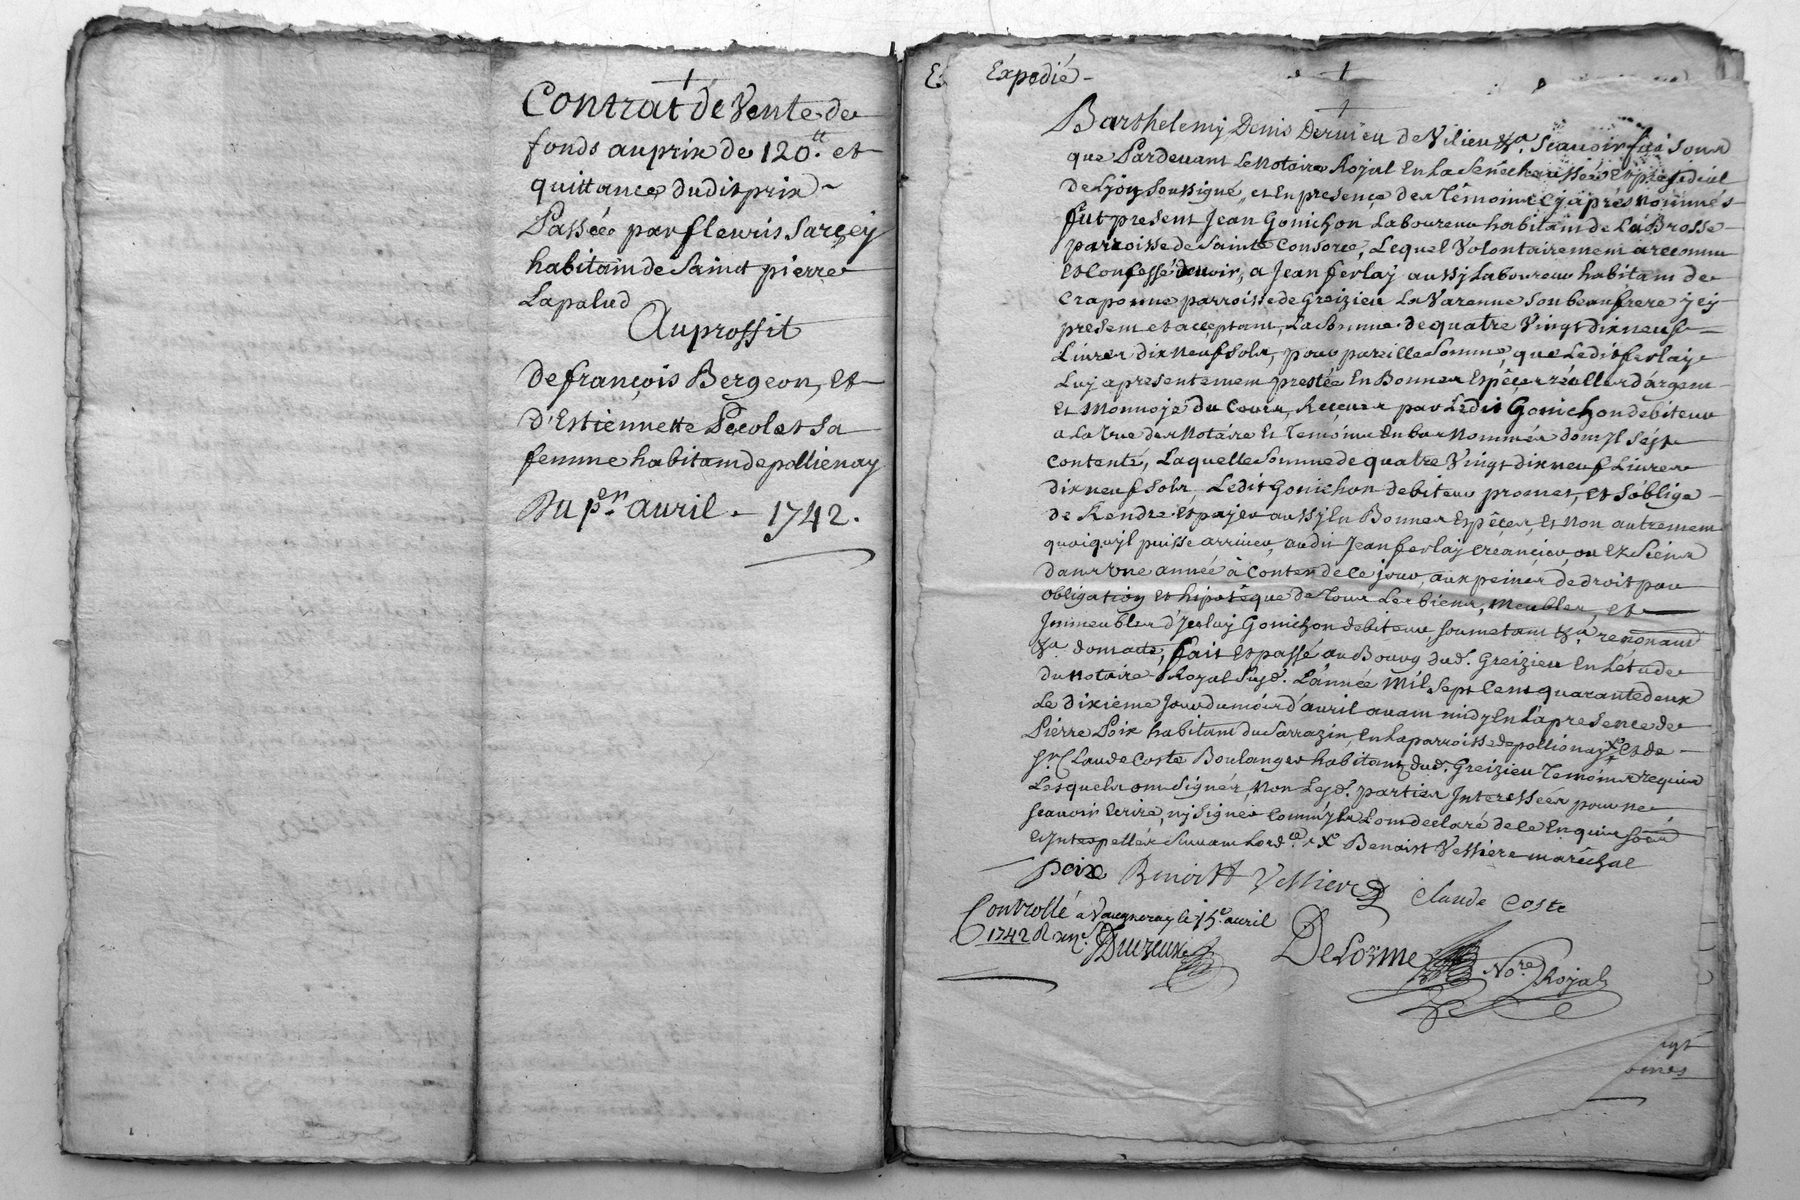 Contrat de Vente de
fonds au prix de 120.tt et
quittance dudit prix ~
Passée par fleuris Sarcey
habitant de Saint pierre
Lapalud
Au proffit
de françois Bergeon, et
d'Estiennette Pecolet Sa
femme habitant de pollienay
Du p.er avril . 1742.
E
Expedié -
Barthelemy Denis Dervieu de Vilieu &a. Scavoir fai Sons
que Pardevant Le Notaire Royal En La Senéchaussée Et presidial
de Lyon Soussigné, et En presence des Témoins Cy aprés Nommés
fut present Jean Gonichon Laboureur habitant de La Brosse
parroisse de Sainte Consorce, Lequel Volontairement a reconnu
Et Confessé devoir, a Jean ferlay aussy Laboureur habitant de
Craponne parroisse de Greizieu La Varenne Son beaufrere jcy
present et acceptant, La Somme de quatre Vingt dix neuf
Livres dix neuf Sols, pour pareille Somme, que Ledit ferlay
Luy a presentement prestée En Bonnes Espêces réelles d'argent
Et Monnoye du Cours, Reçues par Ledit Gonichon debiteur
a La Vue des Notaire Et Temoins En bas Nommés dont jl S'est
Contenté, Laquelle Somme de quatre Vingt dix neuf Livres
dix neuf Sols, Ledit Gonichon debiteur promet, et S'oblige
de Rendre et payer aussy En Bonnes Espêces, Et non autrement
quoiqu'jl puisse arriver, audit Jean ferlay Créancier, ou Ez Siens
dans Une année à Conter de Ce jour, aux peines de droit par
obligation Et hipotêque de Tous Les biens, Meubles, et
Jmmeubles d'jceluy Gonichon debiteur, Soumetant &a. renonçant
&a. dont acte, fait Et passé au Bourg dud. Greizieu En L'étude
du Notaire Royal Susd. L'année Mil Sept Cent quarante deux
Le dixième jour du mois d'avril avant midy En La presence de
Pierre Poix habitant du Sarrazin, En La parroisse de pollionay X Et de
Sr. Claude Coste Boulanger habitant dud. Greizieu Temoins requis
Lesquels ont Signés, Non Lesd. parties Jnteressées pour ne
Scavoir Ecrire, ny Signer Comm'jls L'ont declaré de Ce Enquis
Et Jnterpellés Suivant L'ord.ce X Benoist Vessiere marêchal
poix Benoitt Vessiere Claude Coste
Controllé a Vaugneray le 15e. avril
1742 R
Delorme No.re Royal